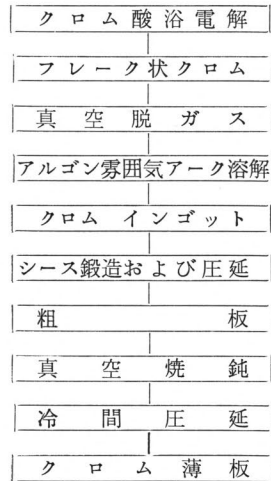 クロム酸浴電解
フレーク状クロム
真空脱ガス
アルゴン雰囲気アーク溶解
クロム インゴット
シース鍛造および圧延
粗板
真空焼鈍
冷間圧延
クロム薄板